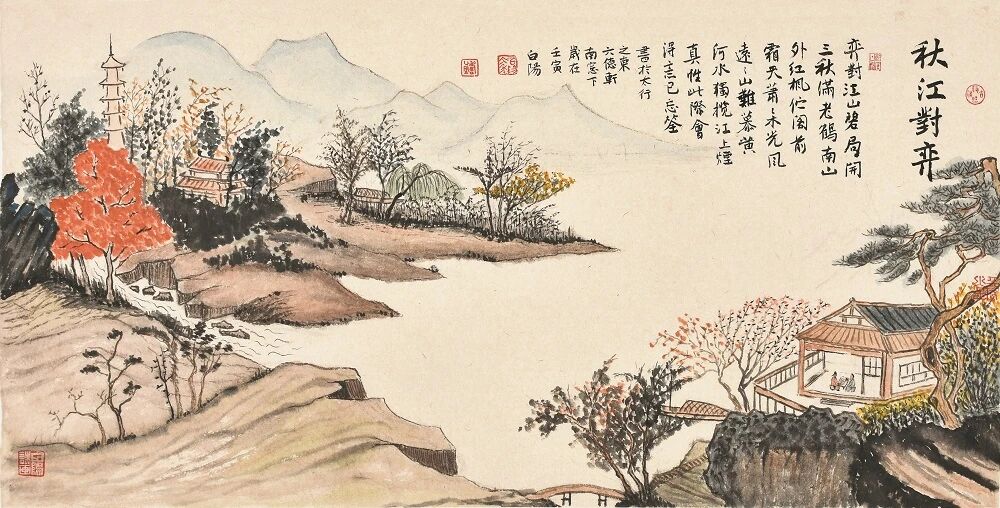 秋江對弈
弈對江山碧局開
三秋滿老鶴南山
外紅楓佇閣前
霜天蕭木光風
遠〻山難慕黄
河水獨攬江上煙
真性此際會
得意已忘筌
書於太行
之東
六德軒
南窓下
歲在
壬寅
白陽